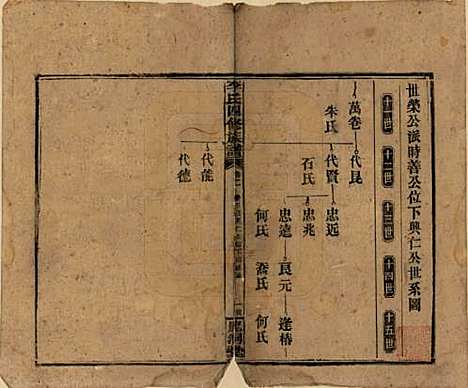 世榮公派時善公位下興仁公世系圖
十一世 十二世 十三世 十四世 十五世
萬卷 代昆
朱氏 代賢 忠近
石氏 忠兆
忠遠 良元 逢椿
何氏 喬氏 何氏
代能
代德
李氏四修族譜